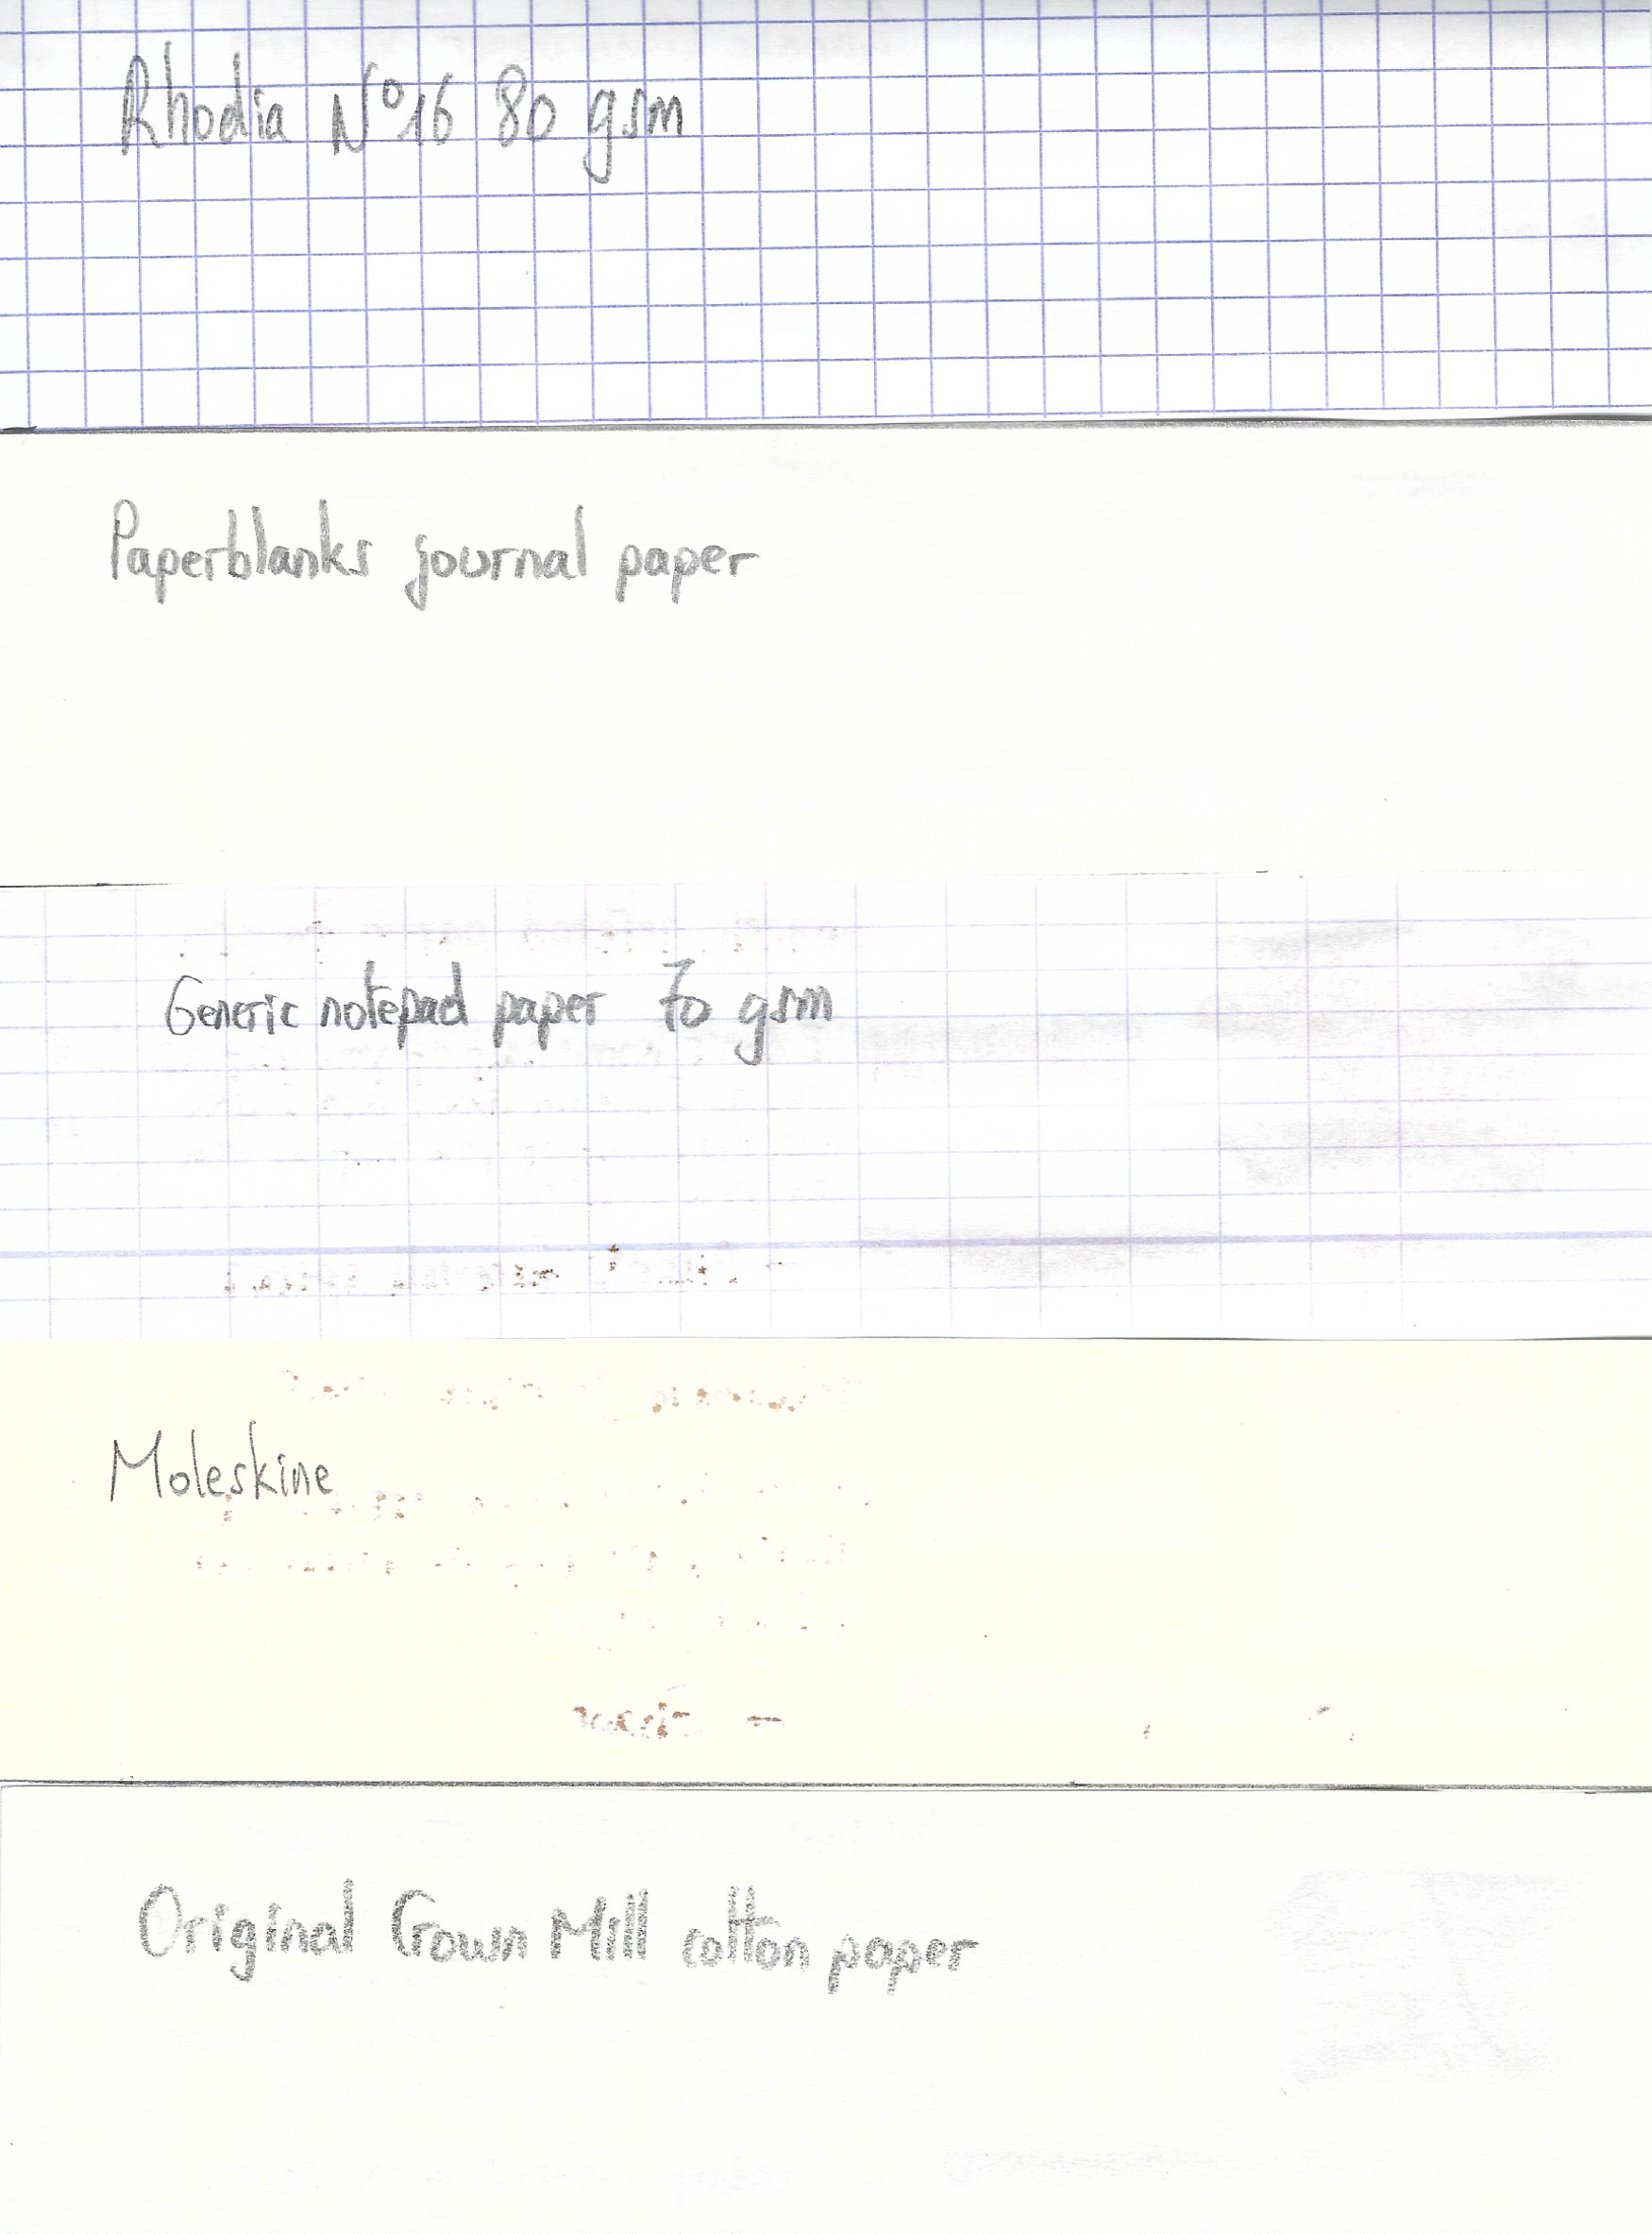 Rhodia N°16 80 gsm
Paperblanks journal paper
Generic notepad paper 70 gsm
Moleskine
Original Crown Mill cotton paper